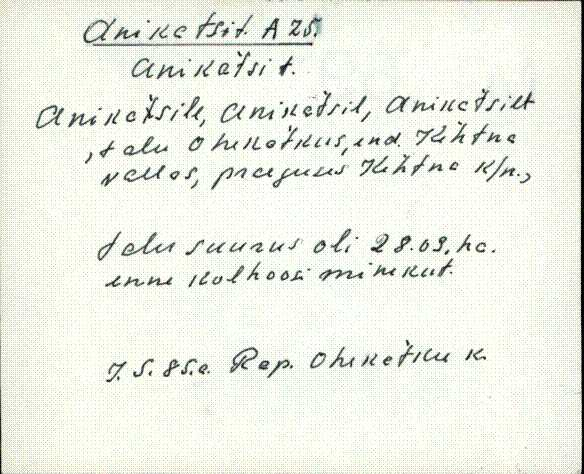 Anikatsit. A 25.
Anikatsit.
Anikatsile, Anikatsil, Anikatsilt
, talu Ohekatkus, end. Kehtna
vallas, praeguses Kehtna k/n.,
talu suurus oli 28.09. ha.
enne kolhoosi minekut.
J. S. 85.a. Rap. Ohekatku k.